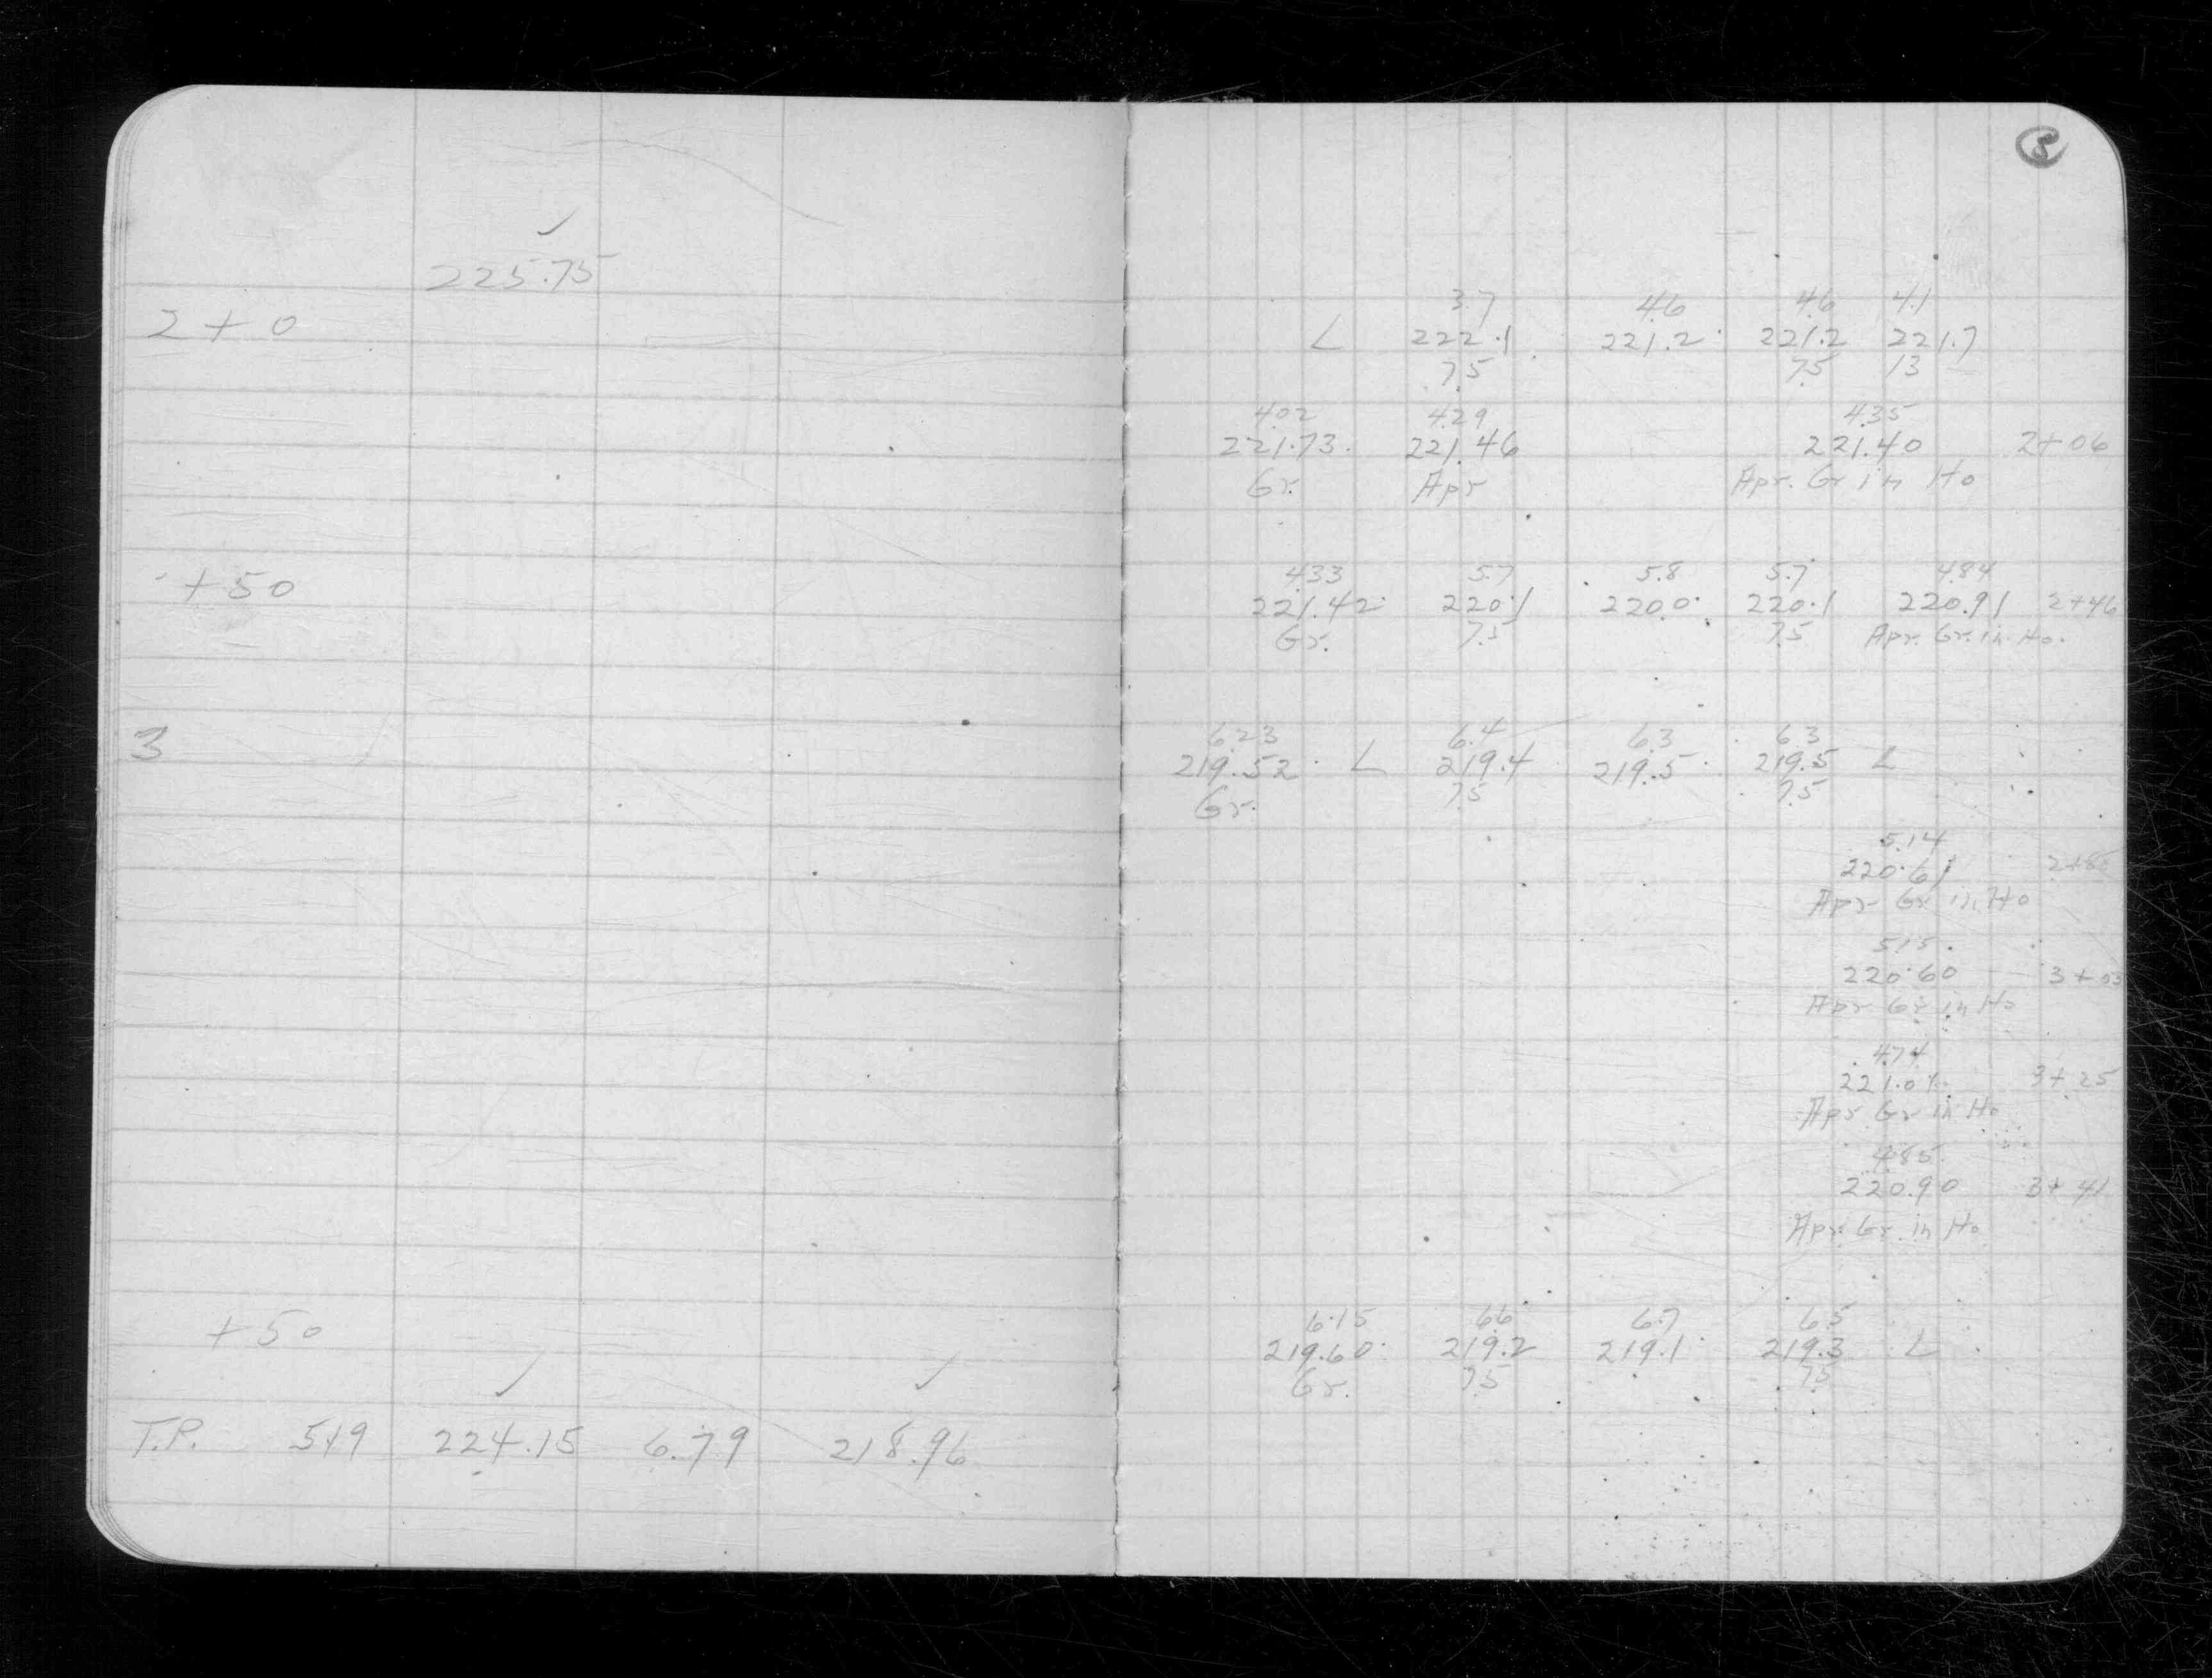 5
✓
225.75
2 + 0
3.7 4.6 4.6 4.1
L 222.1 221.2 221.2 221.7
7.5 7.5 13
4.02 4.29 4.35
221.73 221.46 221.40 2+06
Gr. Apr Apr. Gr in Ho
+50
4.33 5.7 5.8 5.7 4.84
221.42 220.1 220.0 220.1 220.91 2+46
Gr. 7.5 7.5 Apr. Gr. in Ho.
3
6.23 6.4 6.3 6.3
219.52 L 219.4 219.5 219.5 L
Gr. 7.5 7.5
5.14
220.61
Apr Gr in Ho
5.15
220.60 3+03
Apr Gr in Ho
4.74
221.01 3+25
Apr Gr in Ho
4.85
220.90 3+41
Apr. Gr. in Ho
+50
6.15 6.6 6.7 6.5
219.60 219.2 219.1 219.3 L
Gr. 7.5 7.5
✓ ✓
T.P. 5.19 224.15 6.79 218.96